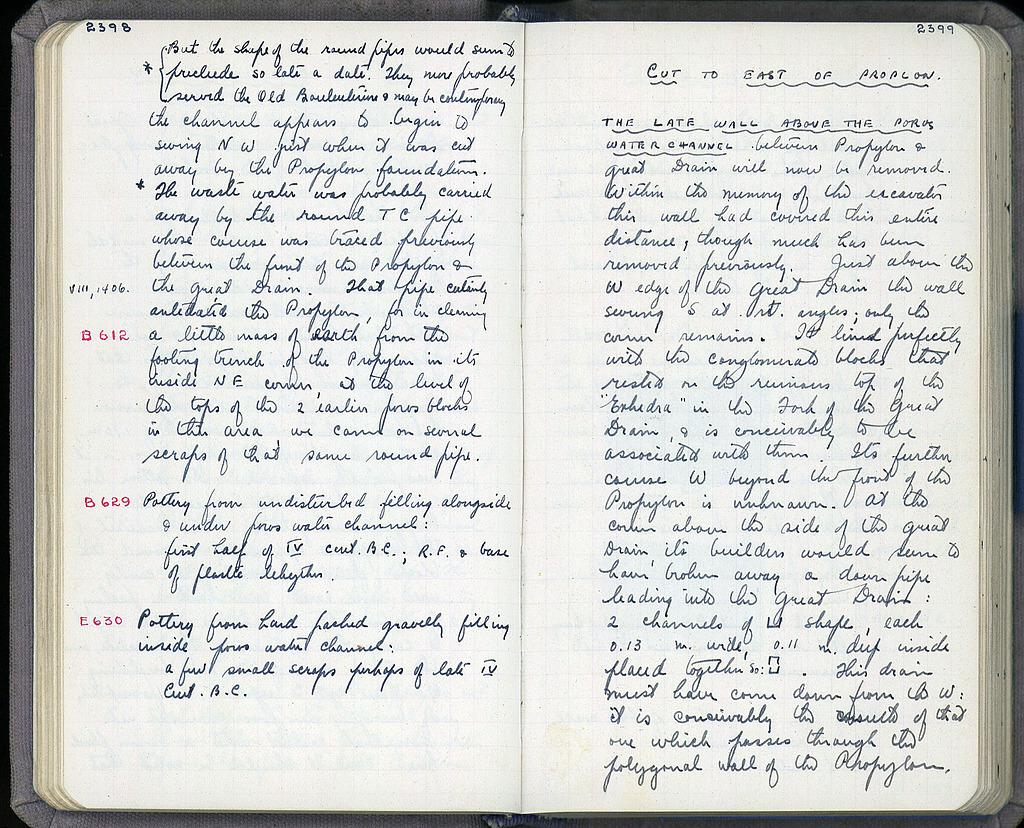 2398
But the shape of the round pipes would seem to
* preclude so late a date. They more probably
served the Old Bouleuterion & may be contemporary
the channel appears to begin to
swing N W just when it was cut
away by the Propylon foundations.
* The waste water was probably carried
away by the round T C pipe
whose course was traced previously
between the front of the Propylon &
VIII, 1406. the great Drain. That pipe certainly
antedated the Propylon, for in cleaning
B 612 a little mass of earth from the
footing trench of the Propylon in its
inside NE corner at the level of
the tops of the 2 earlier poros blocks
in this area, we came on several
scraps of that same round pipe.
B 629 Pottery from undisturbed filling alongside
& under poros water channel:
first half of IV cent. B.C.; R.F. & base
of plastic lekythos.
E 630 Pottery from hard packed gravelly filling
inside poros water channel:
a few small scraps perhaps of late IV
Cent. B.C.
2399
CUT TO EAST OF PROPLON.
THE LATE WALL ABOVE THE POROS
WATER CHANNEL between Propylon &
great Drain will now be removed.
Within the memory of the excavator
this wall had covered this entire
distance, though much has been
removed previously. Just above the
W edge of the Great Drain the wall
swung S at rt. angles; only the
corner remains. It lined perfectly
with the conglomerate blocks that
rested on the remains top of the
"Exhedra" in the Fork of the Great
Drain, & is conceivably to be
associated with them. Its further
course W beyond the front of the
Propylon is unknown. At the
corner above the side of the great
Drain its builders would seem to
have broken away a down pipe
leading into the Great Drain:
2 channels of ⊔ shape, each
0.13 m. wide, 0.11 m. deep inside
placed together so: . This drain
must have come down from the W:
it is conceivably the of that
one which passes through the
polygonal wall of the Propylon.